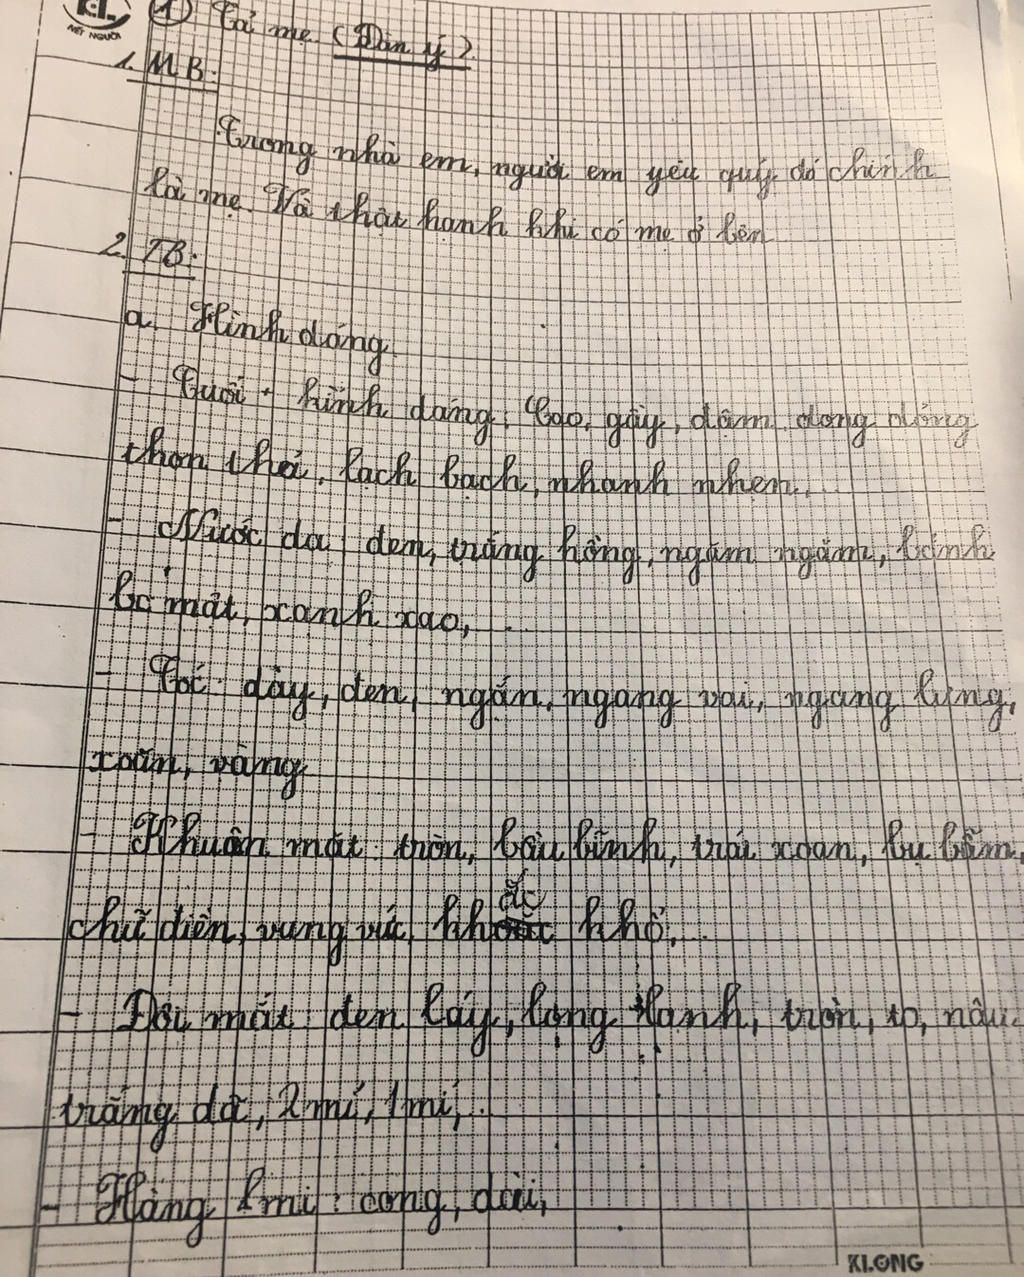 KL
NÉT NGƯỜI
① Tả mẹ (Dàn ý)
1. MB:
Trong nhà em, người em yêu quý đó chính
là mẹ. Và thật hạnh khi có mẹ ở bên
2. TB:
a. Hình dáng
- Tuổi + hình dáng: Cao, gầy, đậm, dong dỏng
thon thả, lạch bạch, nhanh nhẹn,...
- Nước da: đen, trắng hồng, ngăm ngăm, bánh
bó mật, xanh xao,...
- Tóc: dày, đen, ngắn, ngang vai, ngang lưng,
xoăn, vàng
- Khuôn mặt: tròn, bầu bĩnh, trái xoan, bụ bẫm,
chữ điền, vưng vức, khắc khổ,...
- Đôi mắt: đen láy, long lanh, tròn, to, nâu
trắng dã, 2 mí, 1 mí,...
- Hàng mi: cong, dài,
KLONG